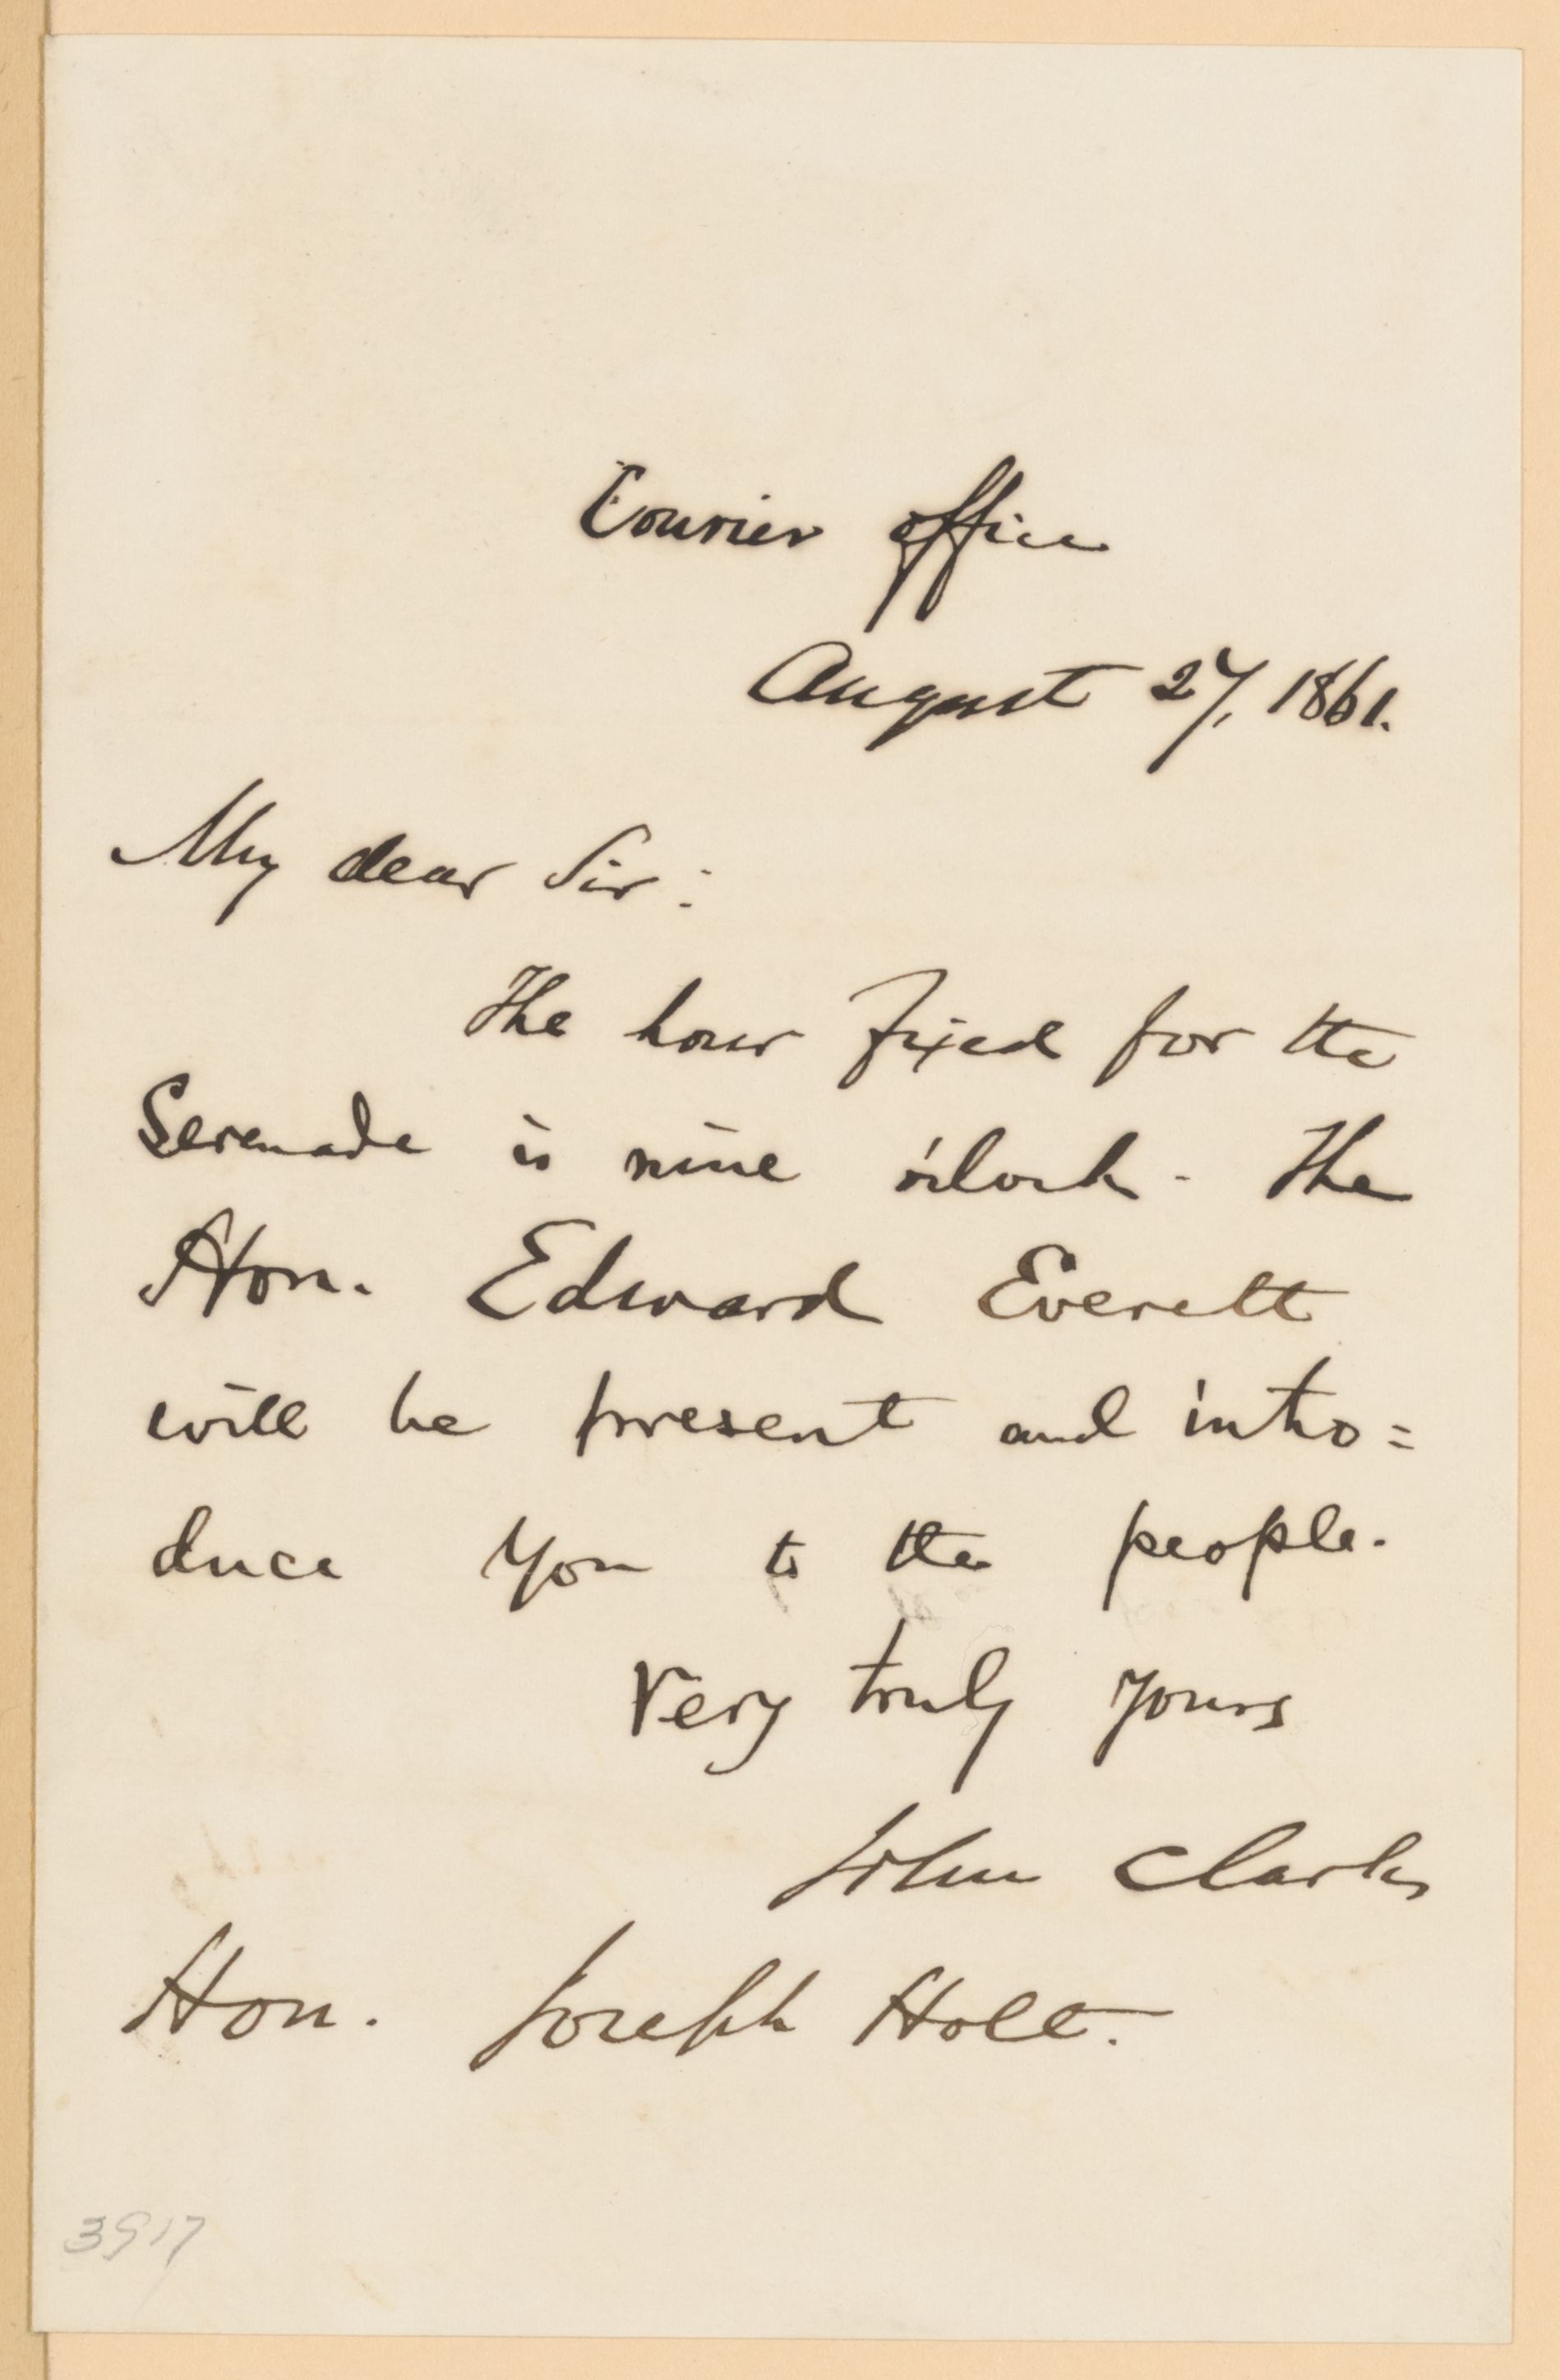 Courier office
August 27, 1861.
My dear Sir:
The hour fixed for the
Serenade is nine o'clock. The
Hon. Edward Everett
will be present and intro=
duce you to the people.
Very truly yours
John Clark
Hon. Joseph Holt.
3917